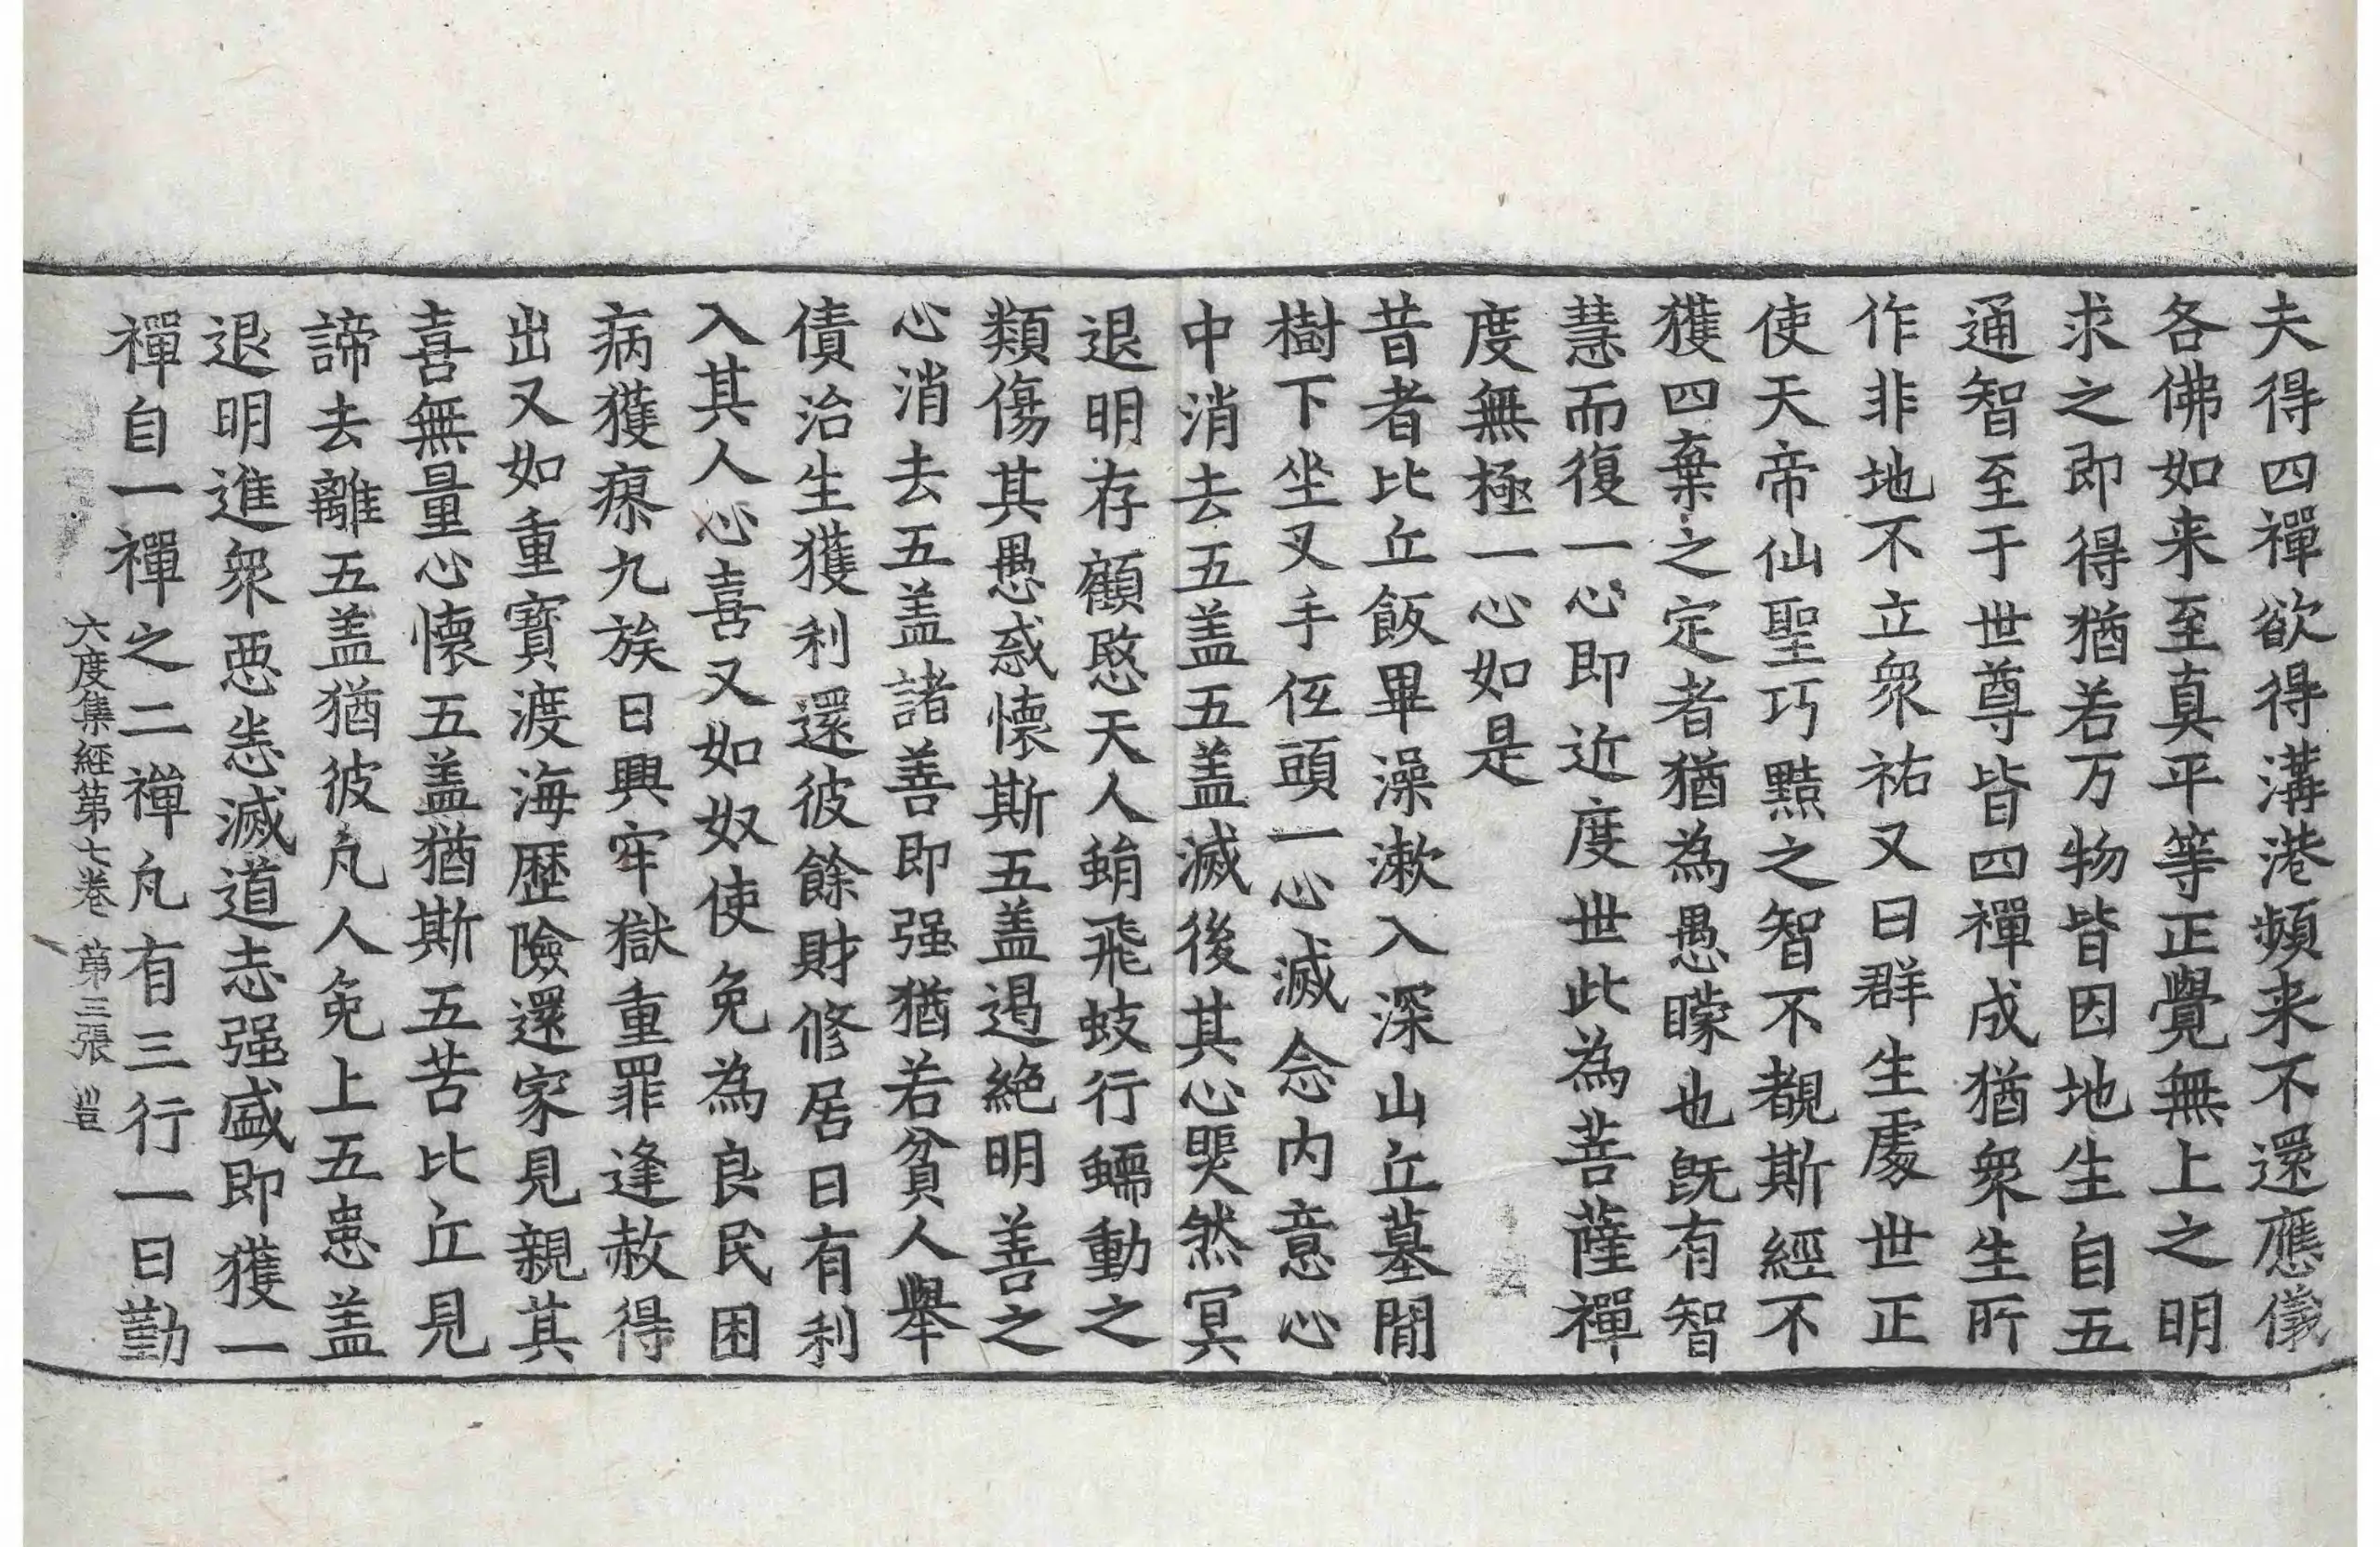 夫得四禪欲得溝港頻来不還應儀
各佛如来至真平等正覺無上之明
求之即得猶若万物皆因地生自五
通智至于世尊皆四禪成猶衆生所
作非地不立衆祐又曰群生處世正
使天帝仙聖巧黠之智不覩斯經不
獲四棄之定者猶為愚矇也既有智
慧而復一心即近度世此為菩薩禪
度無極一心如是
昔者比丘飯畢澡漱入深山丘墓間
樹下坐叉手伭頭一心滅念内意心
中消去五盖五盖滅後其心煚然冥
退明存顧愍天人蜎飛蚑行蠕動之
類傷其愚惑懷斯五盖遏絶明善之
心消去五盖諸善即强猶若貧人舉
債治生獲利還彼餘財修居日有利
入其人心喜又如奴使免為良民困
病獲瘳九族日興牢獄重罪逢赦得
出又如重寳渡海歴險還家見親其
喜無量心懷五盖猶斯五苦比丘見
諦去離五盖猶彼凡人免上五患盖
退明進衆惡悉滅道志强盛即獲一
禪自一禪之二禪凡有三行一曰勤
六度集經第七卷 第三張